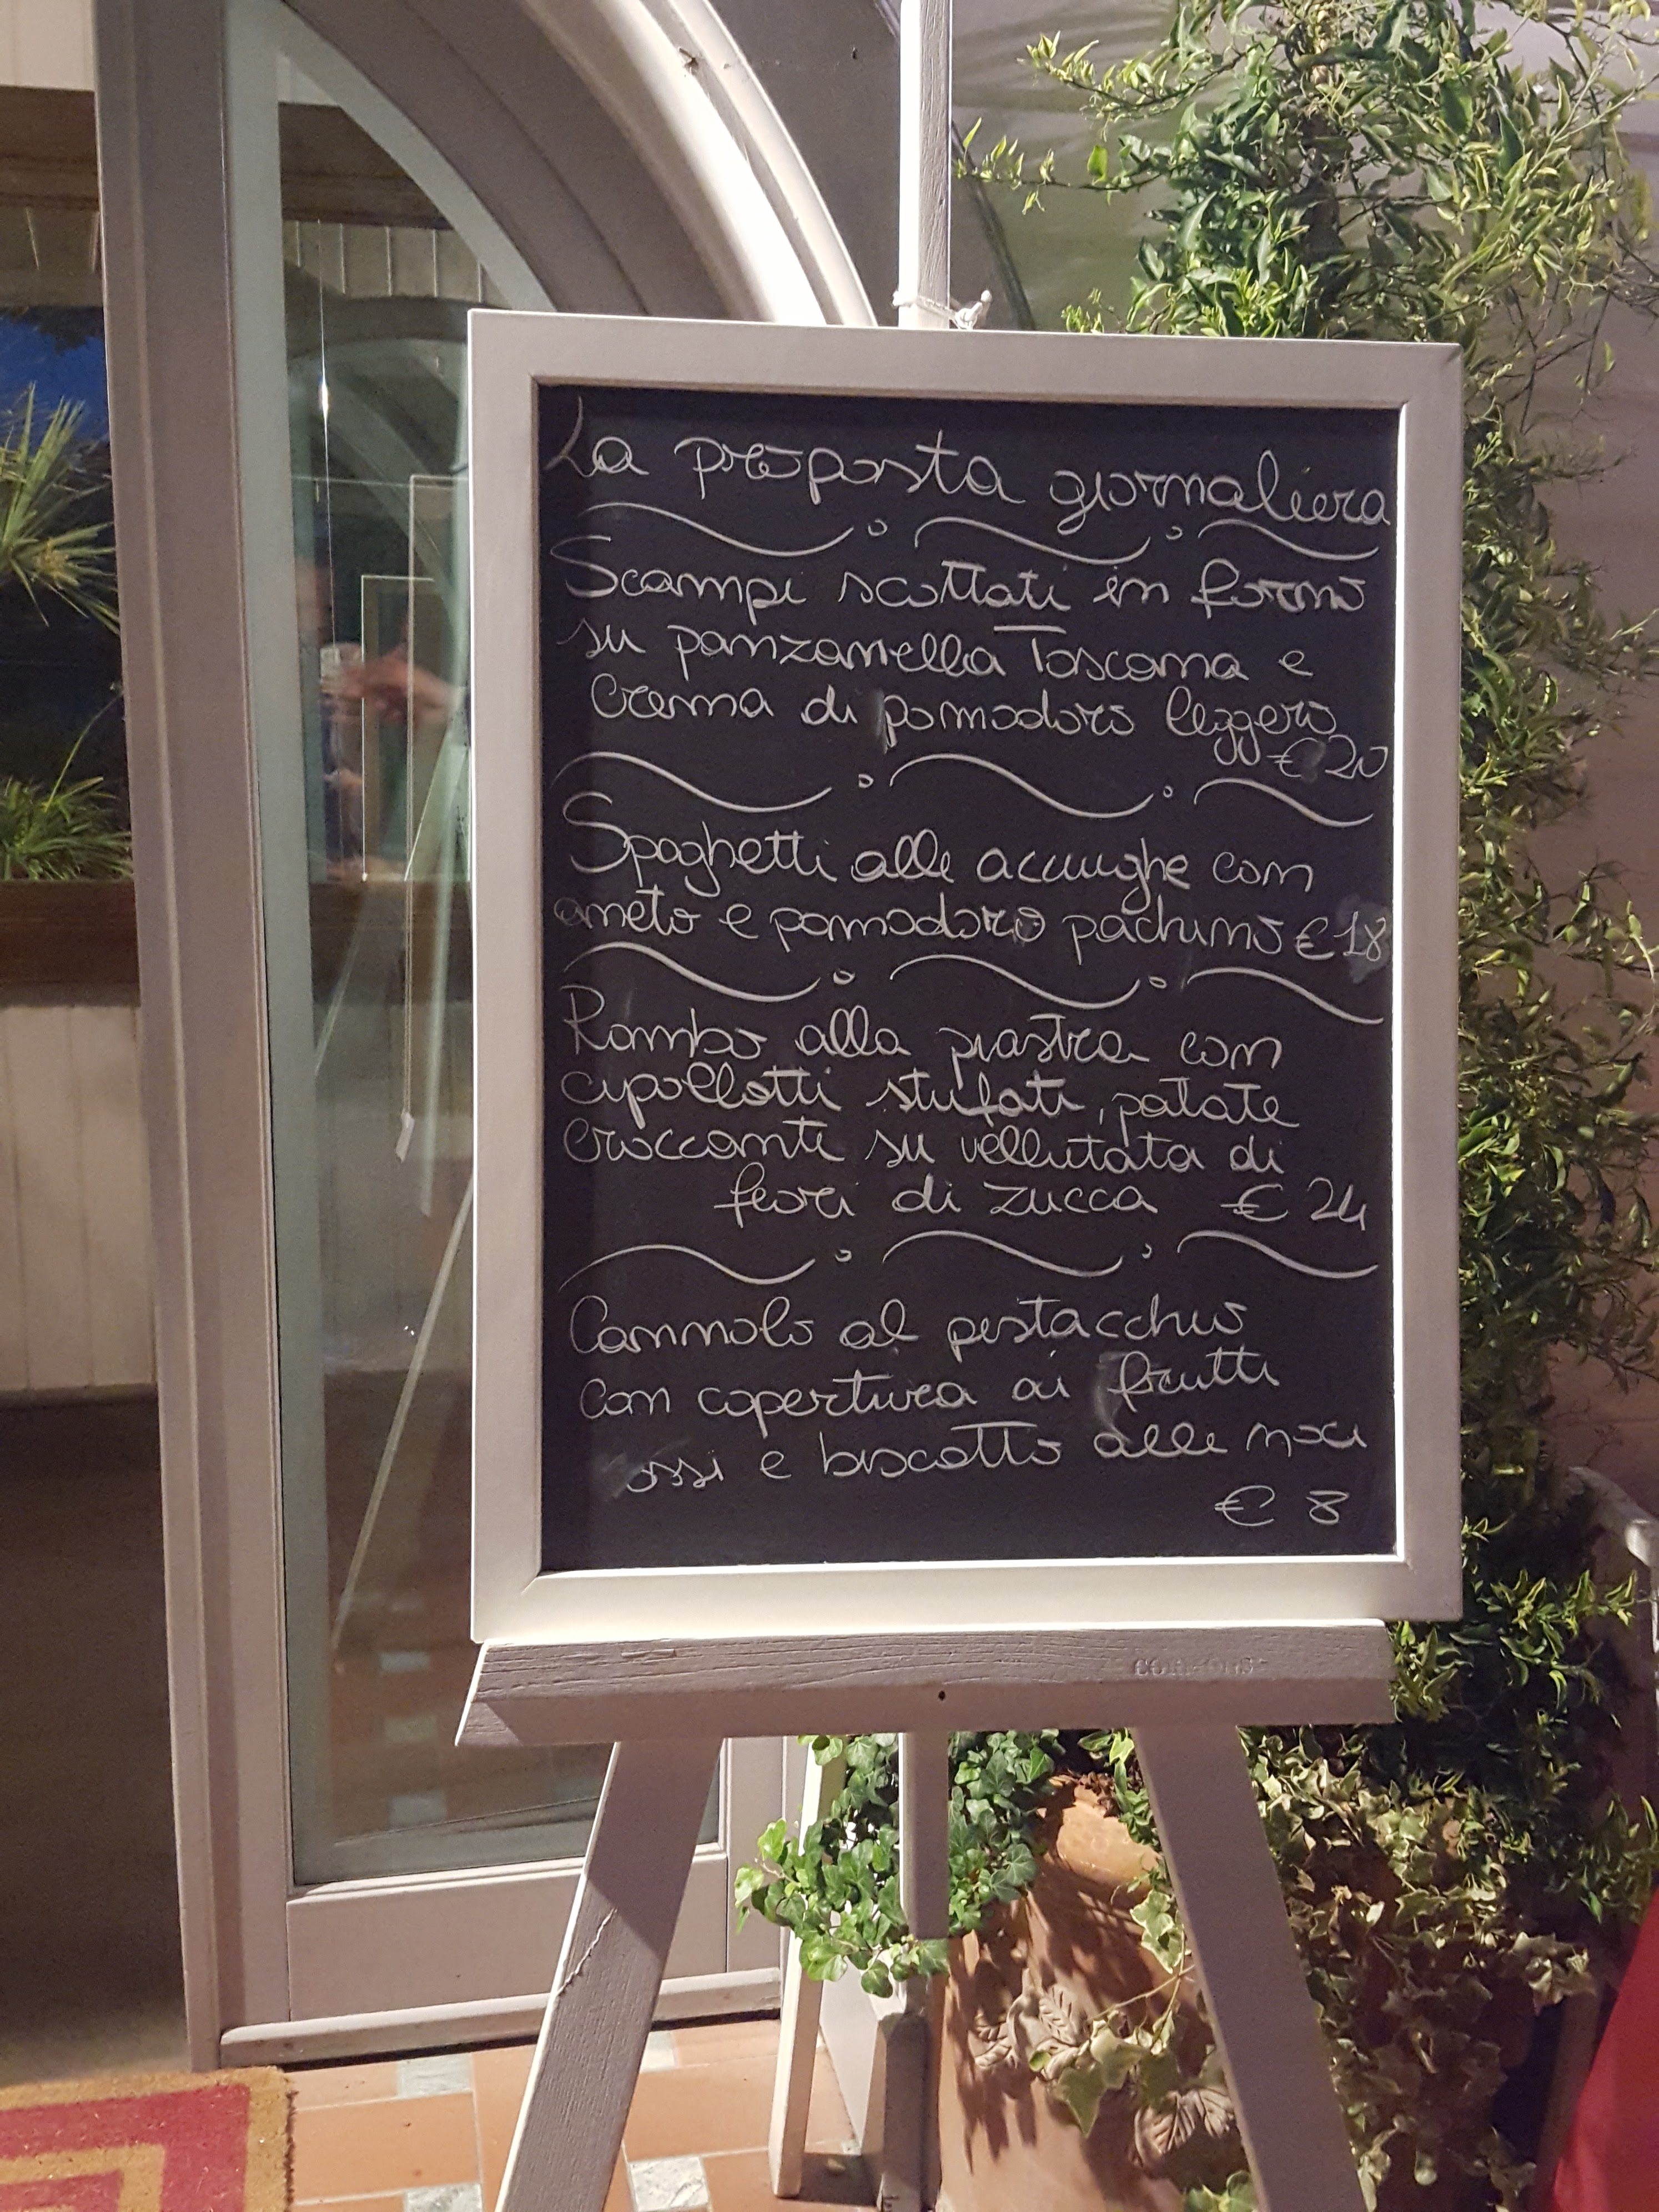 La proposta giornaliera
Scampi scottati in forno
su panzanella Toscana e
crema di pomodoro leggero
€ 20
Spaghetti alle acciughe con
aneto e pomodoro pachino € 18
Rombo alla piastra con
cipollotti stufati, patate
croccanti su vellutata di
fiori di zucca € 24
Cannolo al pistacchio
con copertura ai frutti
ossi e biscotto alle noci
€ 8